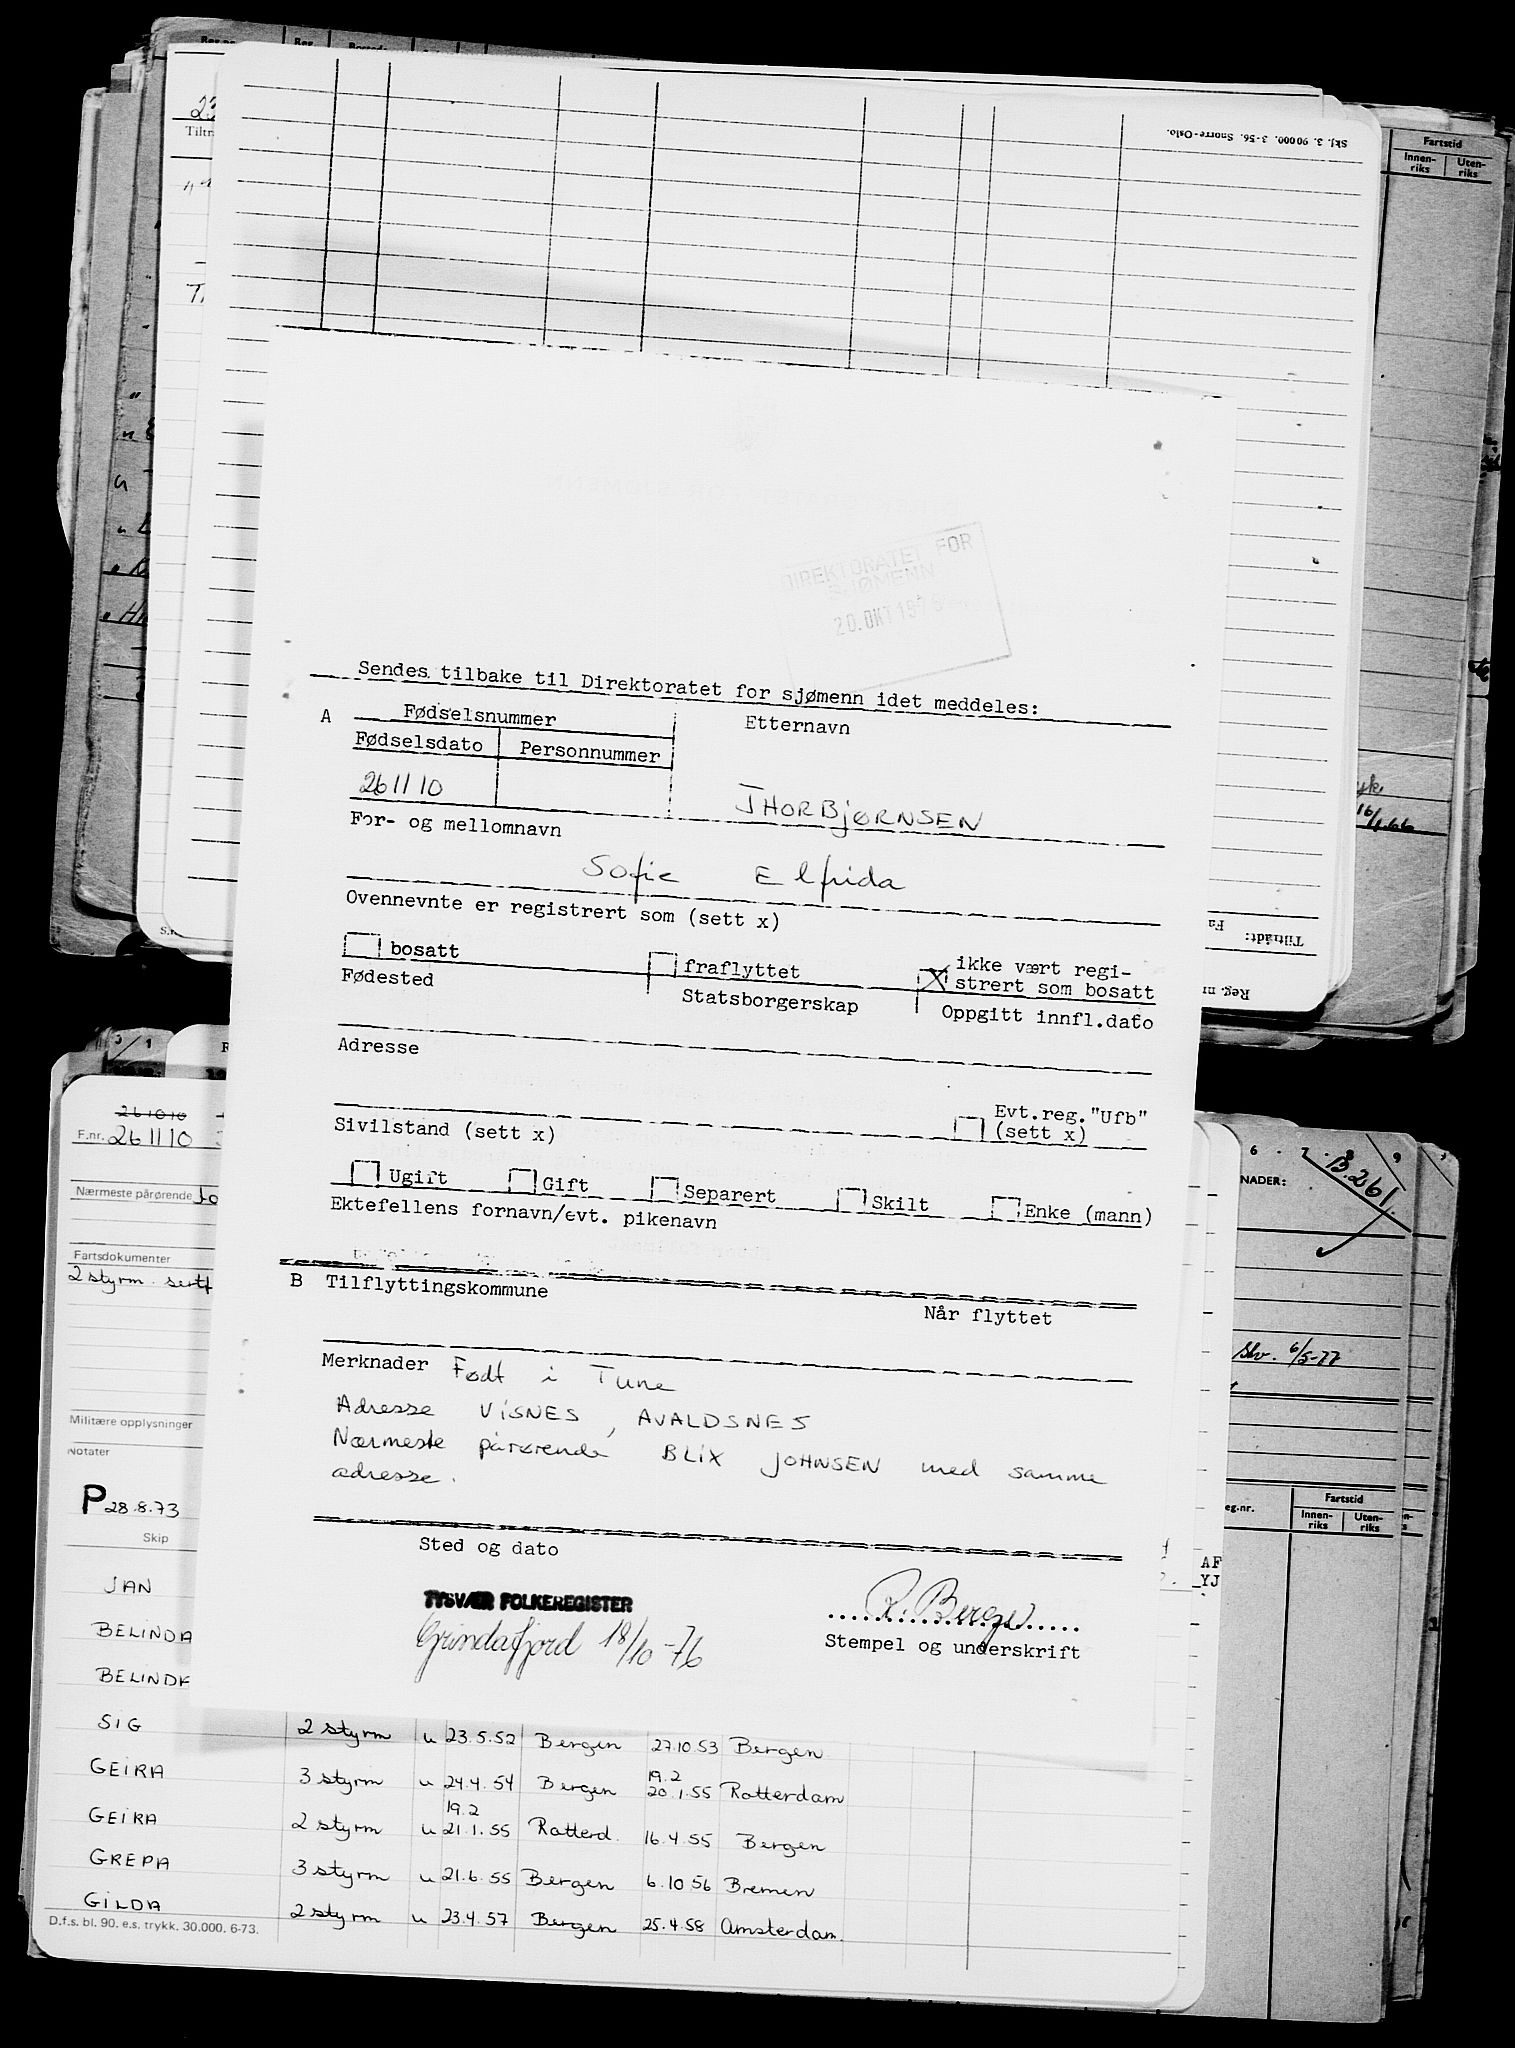 Skj. 3. 90000. 3-56. Snorre-Oslo.
Fartstid
Innen-
riks
Uten-
riks
Tiltr
DIREKTORATET FOR
SJØMENN
20. OKT 197
Sendes tilbake til Direktoratet for sjømenn idet meddeles:
A
Fødselsnummer
Etternavn
Fødselsdato
Personnummer
261110
THORBJØRNSEN
For- og mellomnavn
Sofie Elfrida
Ovennevnte er registrert som (sett x)
bosatt
fraflyttet
X
ikke vært regi-
strert som bosatt
Fødested
Statsborgerskap
Oppgitt innfl.dato
Adresse
Evt.reg."Ufb"
(sett x)
Sivilstand (sett x)
Ugift
Gift
Separert
Skilt
Enke (mann)
Ektefellens fornavn/evt. pikenavn
B Tilflyttingskommune
Når flyttet
Merknader Født i Tune
Adresse VISNES, AVALDSNES
Nærmeste pårørende BLIX JOHNSEN med samme
adresse.
Sted og dato
TYSVÆR FOLKEREGISTER
Grindafjord 18/10-76
R. Berge
Stempel og underskrift
16/1.66
Tiltrådt:
Reg. nr
261010
F.nr. 261110
Nærmeste pårørende
Fartsdokumenter
2 styrm. sertf
Militære opplysninger
Notater
P 28.8.73
Skip
JAN
BELINDA
BELINDA
SIG 2 styrm u 23.5.52 Bergen 27.10.53 Bergen
19.2
GEIRA 3 styrm u 24.4.54 Bergen 20.1.55 Rotterdam
19.2
GEIRA 2 styrm u 21.1.55 Rotterd. 16.4.55 Bergen
GREPA 3 styrm u 21.6.55 Bergen 6.10 56 Bremen
GILDA 2 styrm u 23.4.57 Bergen 25.4.58 Amsterdam.
D.f.s. bl. 90. e.s. trykk. 30.000. 6-73.
6 7 8 9
NADER:
B.261.
6/5-77
eg.nr.
Fartstid
Innen-
riks
Uten-
riks
AF
YJ